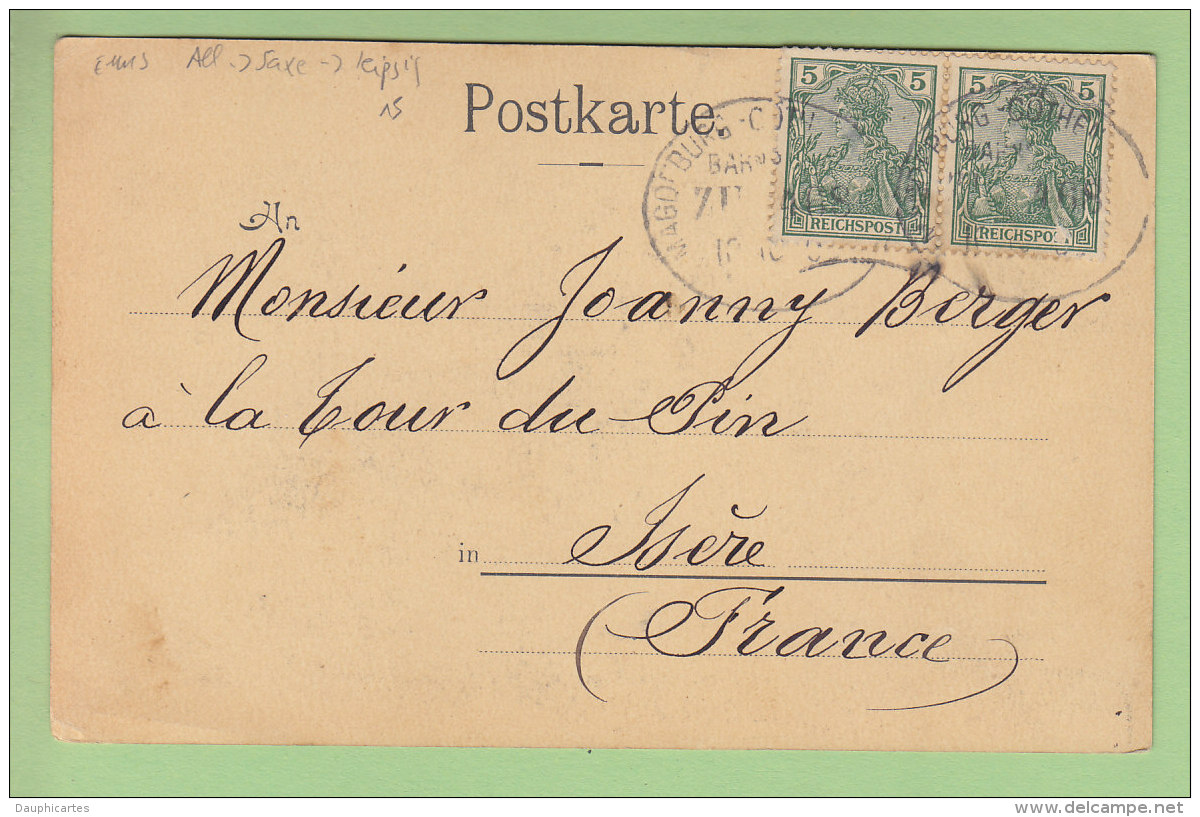 All -> Saxe -> Leipsig
15
Postkarte.
5 5 5 5
REICHSPOST REICHSPOST
MAGDEBURG - CÖTHEN
ZUG
An
Monsieur Joanny Berger
à la Tour du Pin
in Isère
(France)
Dauphicartes
www.delcampe.net